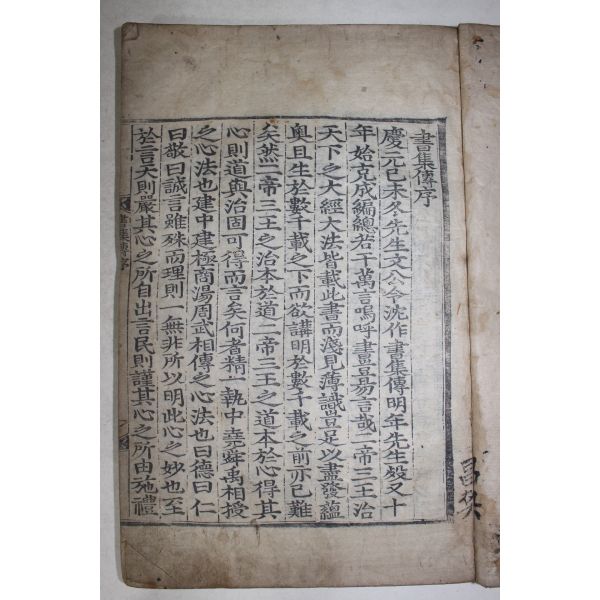 書集傳序
慶元己未冬先生文公令沈作書集傳明年先生歿又十
年始克成編總若干萬言嗚呼書豈易言哉二帝三王治
天下之大經大法皆載此書而淺見薄識豈足以盡發蘊
奧且生於數千載之下而欲講明於數千載之前亦已難
矣然二帝三王之治本於道二帝三王之道本於心得其
心則道與治固可得而言矣何者精一執中堯舜禹相授
之心法也建中建極商湯周武相傳之心法也曰德曰仁
曰敬曰誠言雖殊而理則一無非所以明此心之妙也至
於言天則嚴其心之所自出言民則謹其心之所由施禮
書集傳序